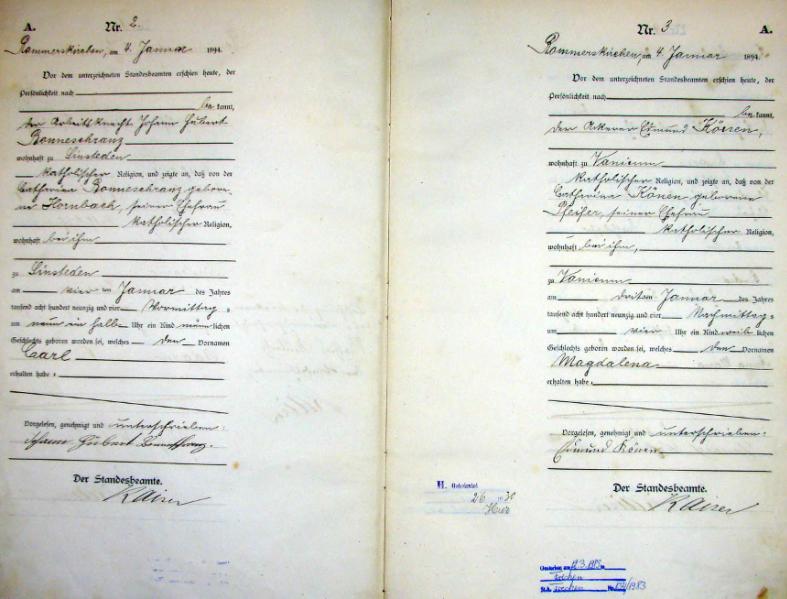 A.
Nr. 2
Rommerskirchen, am 4. Januar 1894.
Vor dem unterzeichneten Standesbeamten erschien heute, der
Persönlichkeit nach
be kannt,
der Arbeitsknecht Johann Hubert
Bonneschranz
wohnhaft zu Sinsteden
katholischer Religion, und zeigte an, daß von der
Catharina Bonneschranz gebore-
ne Hornbach, seiner Ehefrau
katholischer Religion,
wohnhaft bei ihm
zu Sinsteden
am vier ten Januar des Jahres
tausend acht hundert neunzig und vier Vormittag s
um neun ein halb Uhr ein Kind männ lichen
Geschlechts geboren worden sei, welches den Vornamen
Carl
erhalten habe.
Vorgelesen, genehmigt und unterschrieben:
Johann Hubert Bonneschranz.
Der Standesbeamte.
Kaiser
Nr. 3
A.
Rommerskirchen, am 4. Januar 1894.
Vor dem unterzeichneten Standesbeamten erschien heute, der
Persönlichkeit nach
be kannt,
der Ackerer Edmund Könen,
wohnhaft zu Vanikum
katholischer Religion, und zeigte an, daß von der
Catharina Könen geborene
Pfeifer, seiner Ehefrau
katholischer Religion,
wohnhaft bei ihm,
zu Vanikum
am dritten Januar des Jahres
tausend acht hundert neunzig und vier Nachmittag s
um vier Uhr ein Kind weib lichen
Geschlechts geboren worden sei, welches den Vornamen
Magdalena
erhalten habe.
Vorgelesen, genehmigt und unterschrieben:
Edmund Könen
Der Standesbeamte.
Kaiser
H.
Gestorben am 12.3.1983